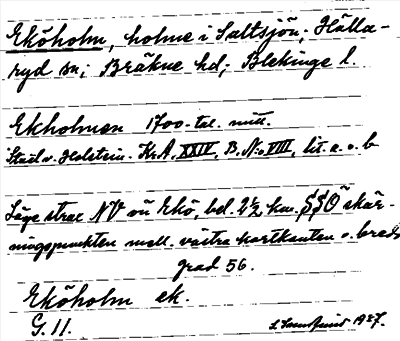 Eköholm, holme i Saltsjön; Hälla-
ryd sn; Bräkne hd; Blekinge l.
Ekholmen 1700-tal. mitt.
Stael v. Holstein. Kr. A. XXIV, B. No VIII, lit. a. o. b
Läge strax NV om Ekö, bel. 2½ km. SSÖ skär-
ningspunkten mell. västra kartkanten o. bredd
grad 56.
Eköholm ek.
G. 11.
1927.